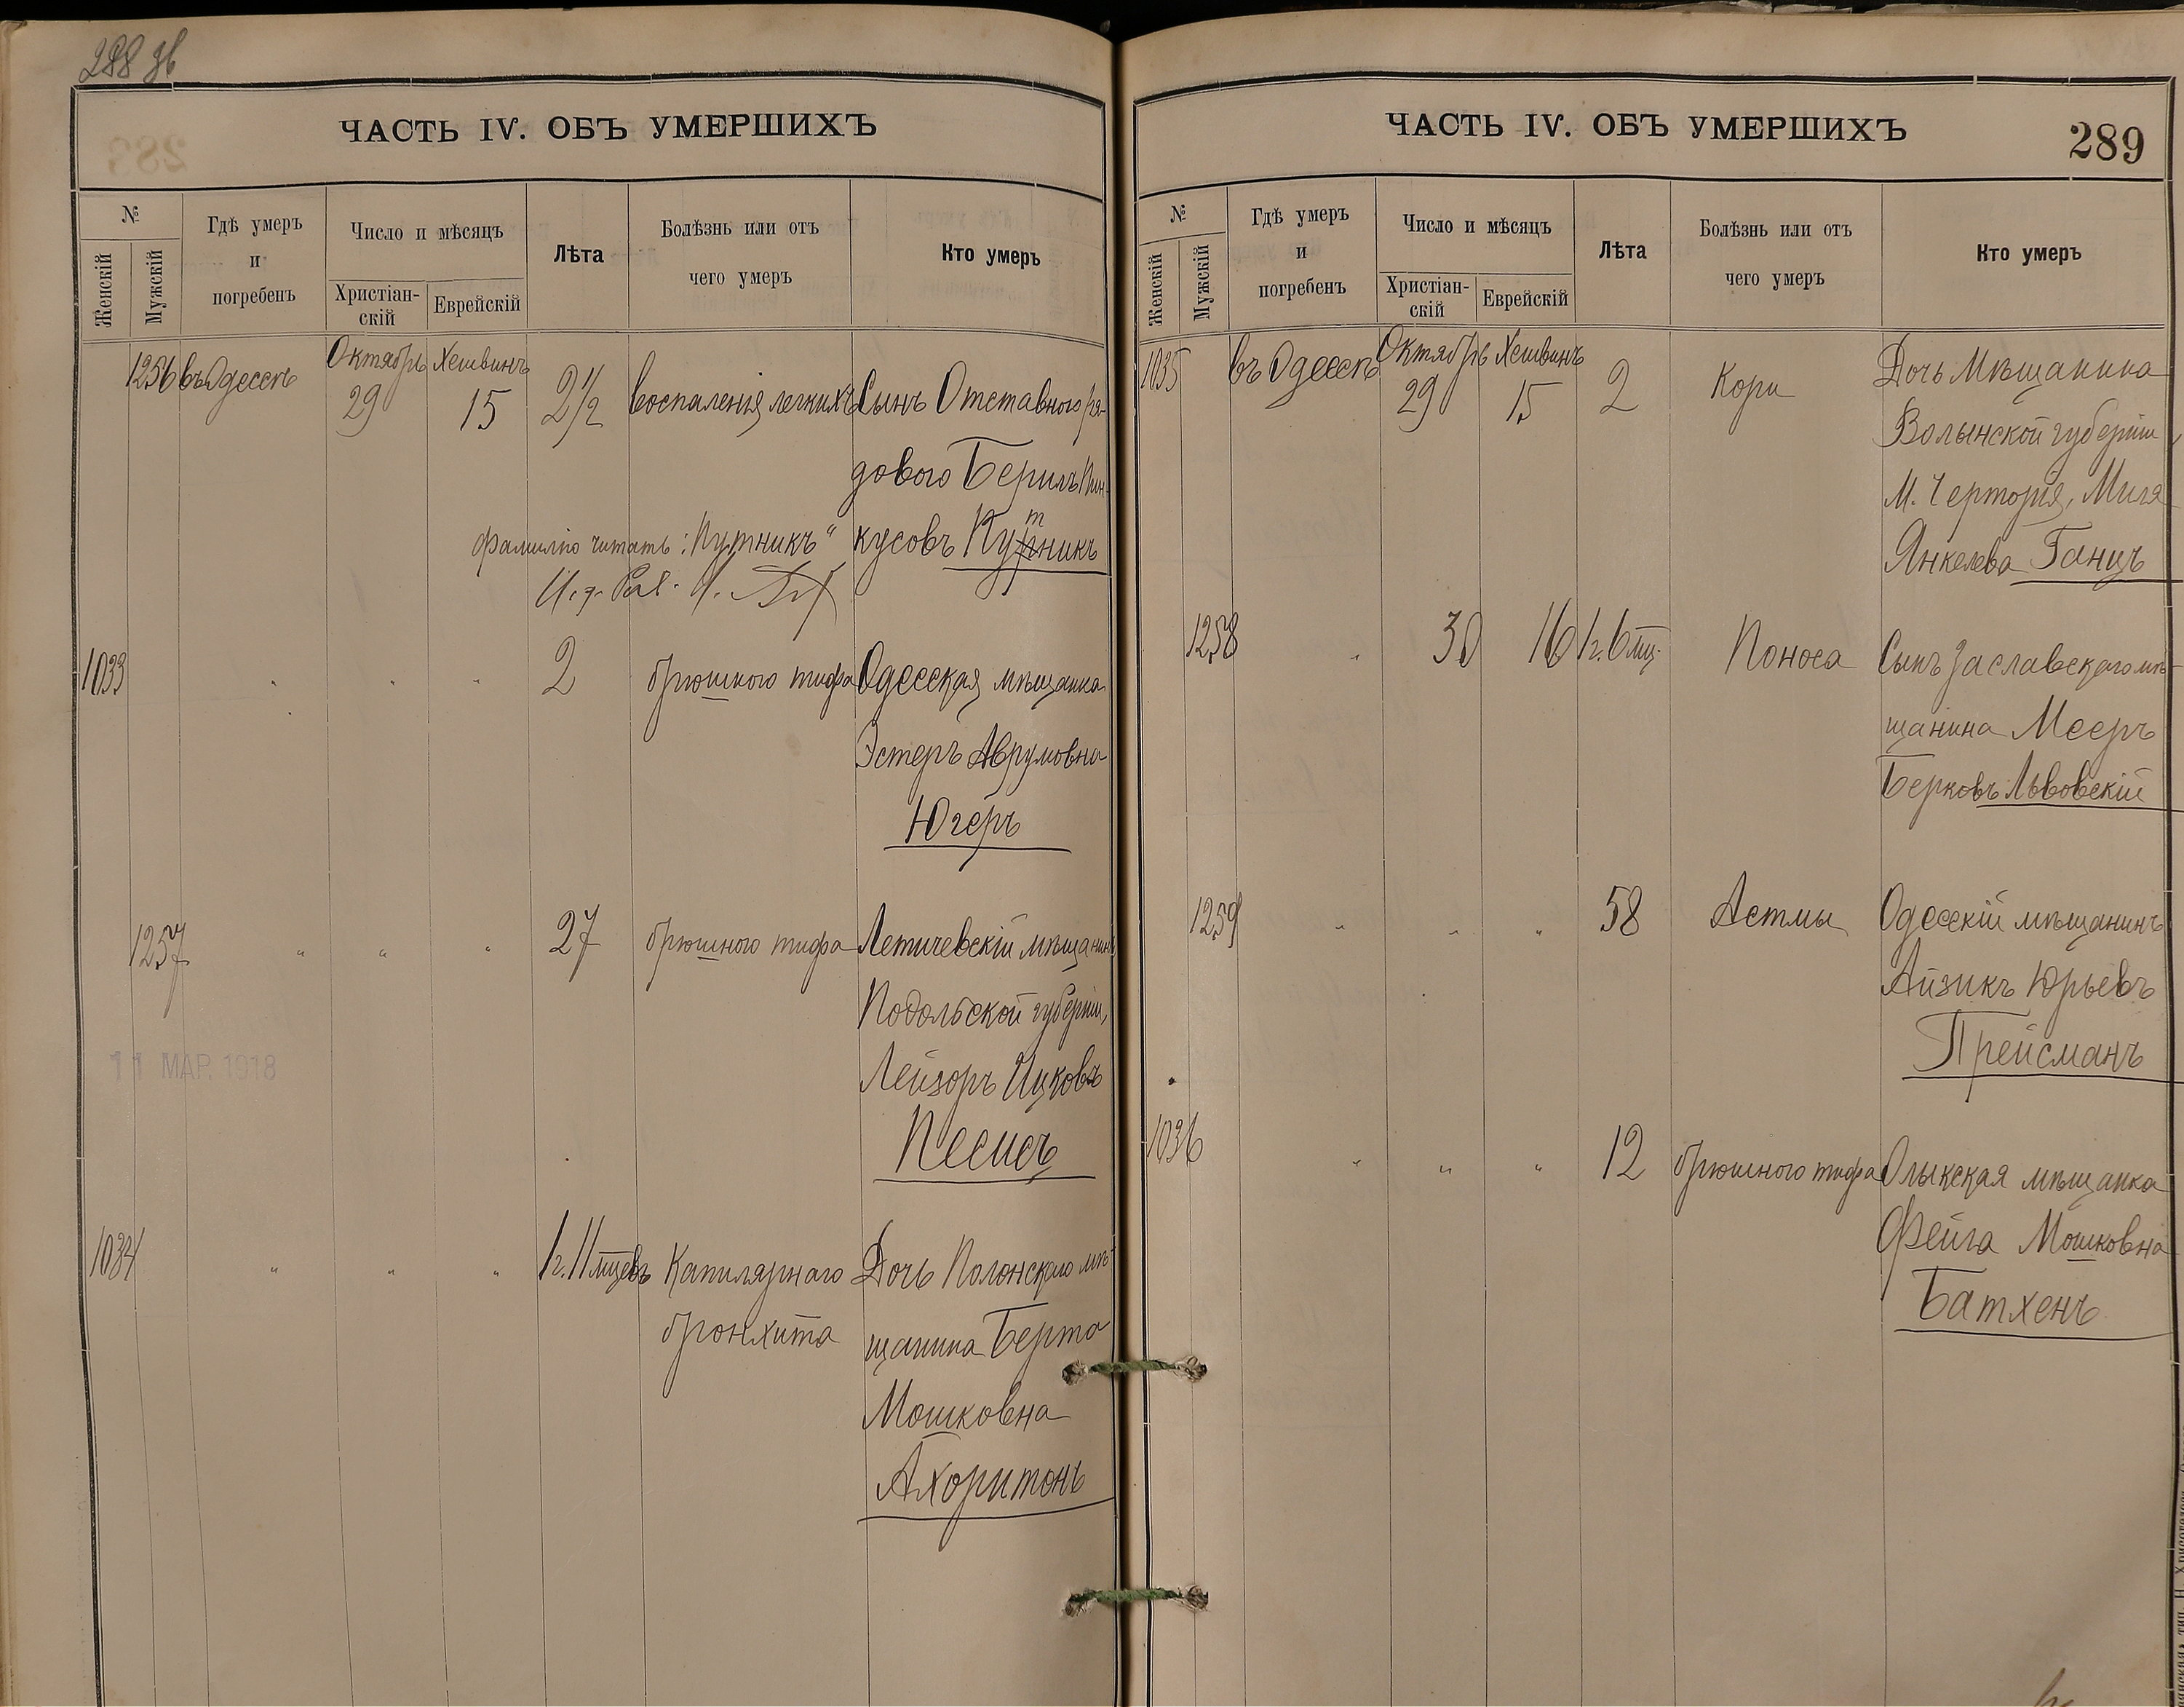 288 об
ЧАСТЬ IV. ОБЪ УМЕРШИХЪ
№
Женскій
Мужскій
Гдѣ умеръ
и
погребенъ
Число и мѣсяцъ
Христіан-
скій
Еврейскій
Лѣта
Болѣзнь или отъ
чего умеръ
Кто умеръ
1256 въ Одессѣ Октябрь 29 Хешвинъ 15 2 1/2 воспаленія легкихъ Сынъ Отставного ря-
дового Берилъ Пин-
кусовъ Путникъ
фамилію читать: „Путникъ“
И. д. Рав.
1033 " " " 2 брюшного тифа Одесская мѣщанка
Эстеръ Аврумовна
Югеръ
1257 " " " 27 брюшного тифа Летичевскій мѣщанинъ
Подольской губерніи,
Лейзоръ Ицковъ
Песисъ
11 МАР. 1918
1034 " " " 1 г. 11 мцевъ Капилярнаго Дочь Полонскаго мѣ-
бронхита щанина Берта
Мошковна
Ахоритонъ
ЧАСТЬ IV. ОБЪ УМЕРШИХЪ
289
№
Женскій
Мужскій
Гдѣ умеръ
и
погребенъ
Число и мѣсяцъ
Христіан-
скій
Еврейскій
Лѣта
Болѣзнь или отъ
чего умеръ
Кто умеръ
1035 въ Одессѣ Октябрь 29 Хешвинъ 15 2 Кори Дочь Мѣщанина
Волынской губерніи,
М. Чертория, Миля
Янкелева Ганцъ
1258 " 30 16 1 г. 6 мц. Поноса Сынъ Заславскаго мѣ-
щанина Мееръ
Берковъ Львовскій
1259 " " " 58 Астмы Одесскій мѣщанинъ
Айзикъ Юрьевъ
Прейсманъ
1036 " " " 12 брюшного тифа Олыкская мѣщанка
Фейга Мошковна
Батхенъ